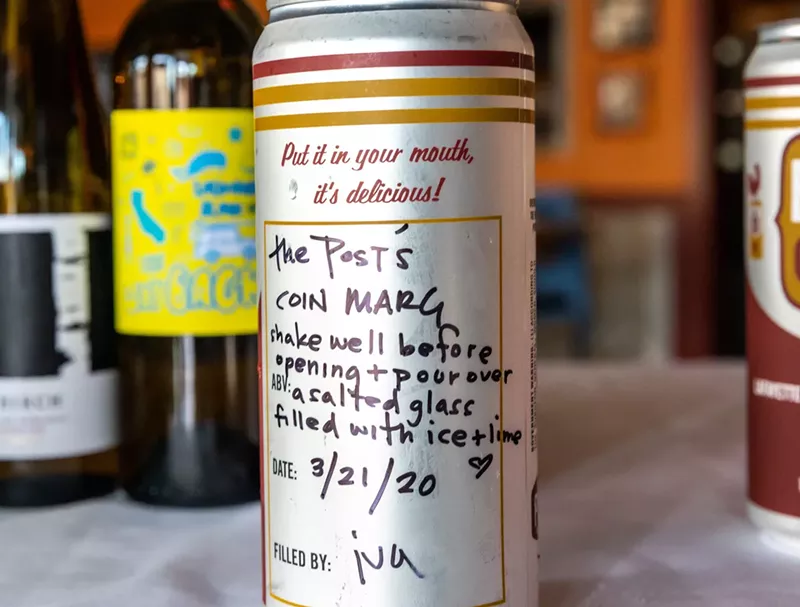 Put it in your mouth,
it's delicious!
the Post's
COIN MARG
shake well before
opening + pour over
ABV: a salted glass
filled with ice + lime
♡
DATE: 3/21/20
FILLED BY: iva